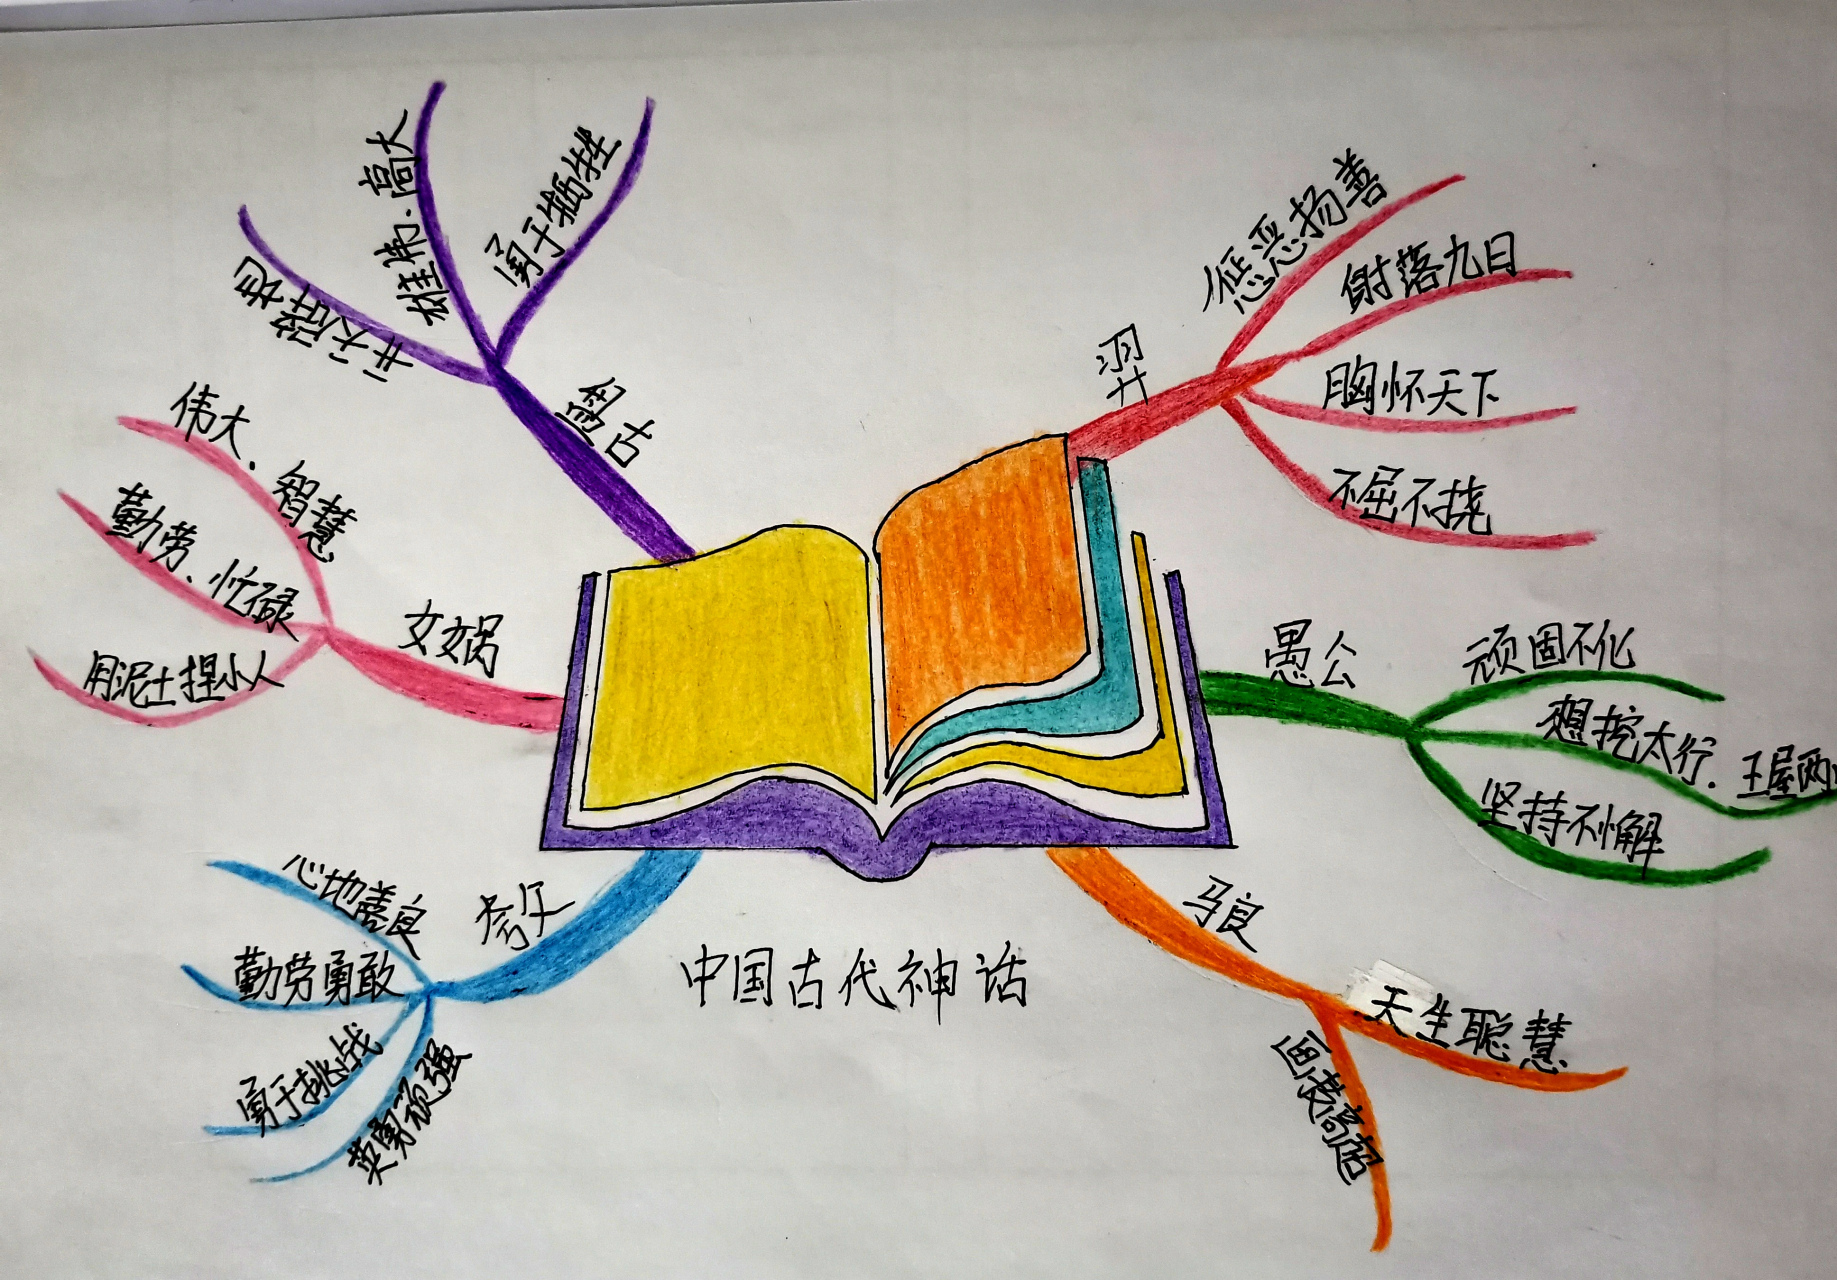 中国古代神话
盘古
开天辟地
雄弟.高大
勇于牺牲
羿
惩恶扬善
射落九日
胸怀天下
不屈不挠
女娲
伟大、智慧
勤劳、忙碌
用泥土捏小人
愚公
顽固不化
想挖太行、王屋两
坚持不懈
夸父
心地善良
勤劳勇敢
勇于挑战
英勇顽强
马良
天生聪慧
画技高超